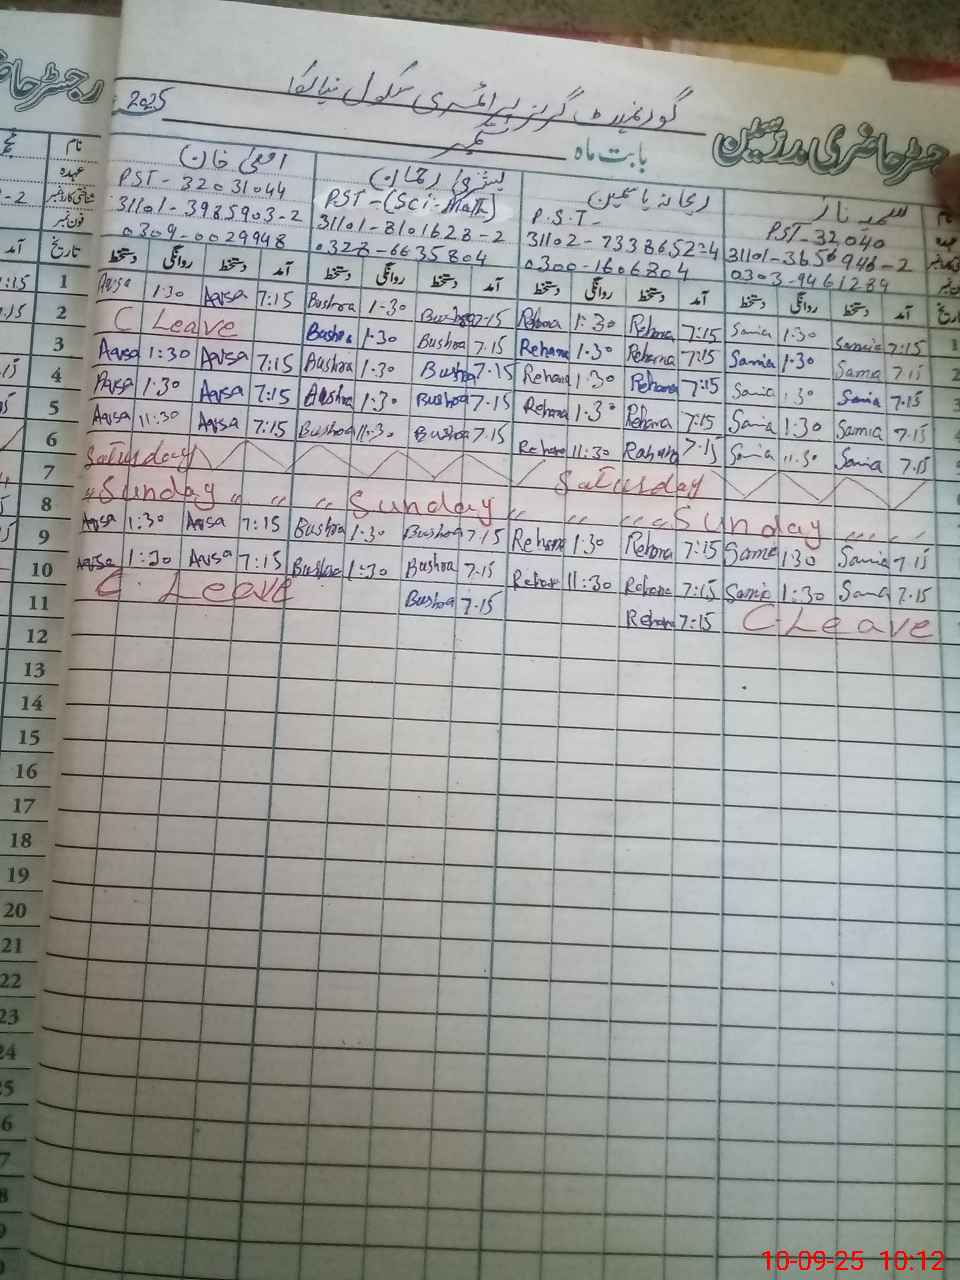 رجسٹر حاضری مدرسین
گورنمنٹ گرلز پرائمری سکول
بابت ماہ ستمبر 2025
نام
عہدہ
شناختی کارڈ نمبر
فون نمبر
تاریخ
سمیہ ناز
PST-32040
0303-9461289
ریحانہ یاسمین
P.S.T-
31102-7338652-4
0300-1606804
بشریٰ رحمان
PST-(Sci-Math)
31101-8101628-2
0328-6635804
اقصیٰ خان
PST-32031044
31101-3985903-2
0309-0029948
آمد دستخط روانگی دستخط آمد دستخط روانگی دستخط آمد دستخط روانگی دستخط آمد دستخط روانگی دستخط
1 Aqsa 1:30 Aqsa 7:15 Bushra 1-30 Bushra 7-15 Rehana 1:30 Rehana 7:15 Samia 1:30 Samia 7:15
2 C Leave Bushra 1-30 Bushra 7.15 Rehana 1:30 Rehana 7:15 Samia 1:30 Samia 7.15
3 Aqsa 1:30 Aqsa 7:15 Bushra 1-30 Bushra 7-15 Rehana 1:30 Rehana 7:15 Samia 1:30 Samia 7.15
4 Aqsa 1:30 Aqsa 7:15 Bushra 1:30 Bushra 7-15 Rehana 1:30 Rehana 7:15 Samia 1:30 Samia 7.15
5 Aqsa 11:30 Aqsa 7:15 Bushra 11:30 Bushra 7.15 Rehana 11:30 Rehana 7:15 Samia 11:30 Samia 7.15
6 Saturday Saturday
7 "Sunday " " " Sunday " " " " Sunday " " "
8 Aqsa 1:30 Aqsa 7:15 Bushra 1:30 Bushra 7.15 Rehana 1:30 Rehana 7:15 Samia 1:30 Samia 7.15
9 Aqsa 1:30 Aqsa 7:15 Bushra 1:30 Bushra 7.15 Rehana 11:30 Rehana 7:15 Samia 1:30 Samia 7.15
10 C Leave Bushra 7.15 Rehana 7:15 C-Leave
11
12
13
14
15
16
17
18
19
20
21
22
23
24
10-09-25 10:12